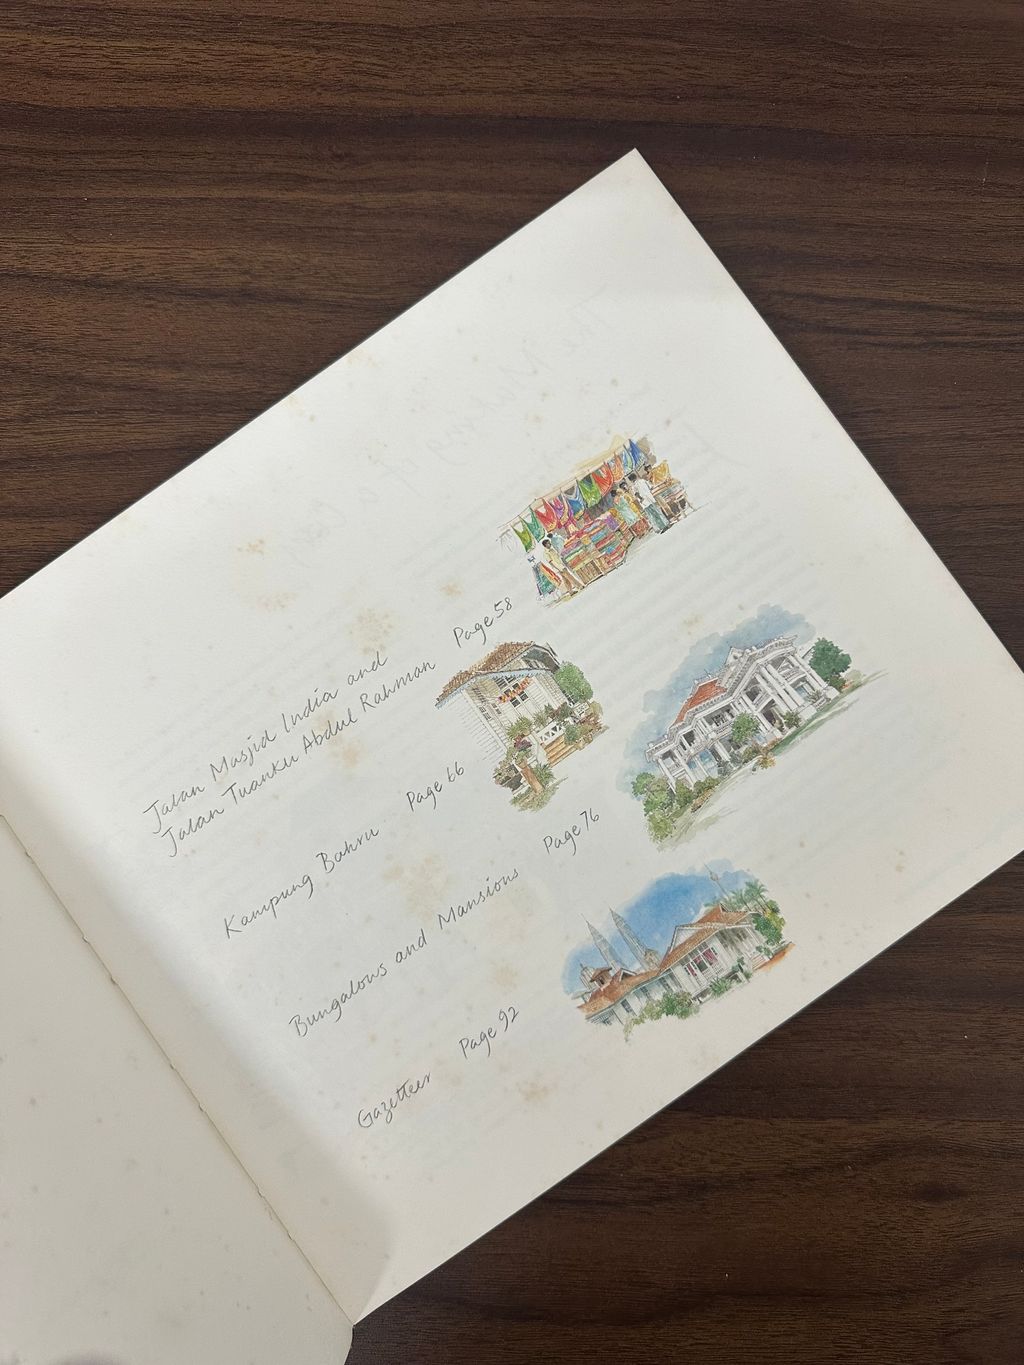 Jalan Masjid India and
Jalan Tuanku Abdul Rahman Page 58
Kampung Bahru Page 66
Bungalows and Mansions Page 76
Gazetteer Page 92